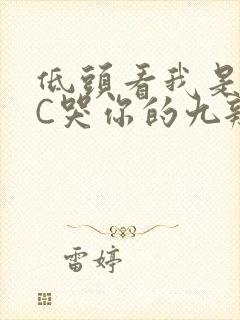 低頭看我是
C哭你的九
雷婷